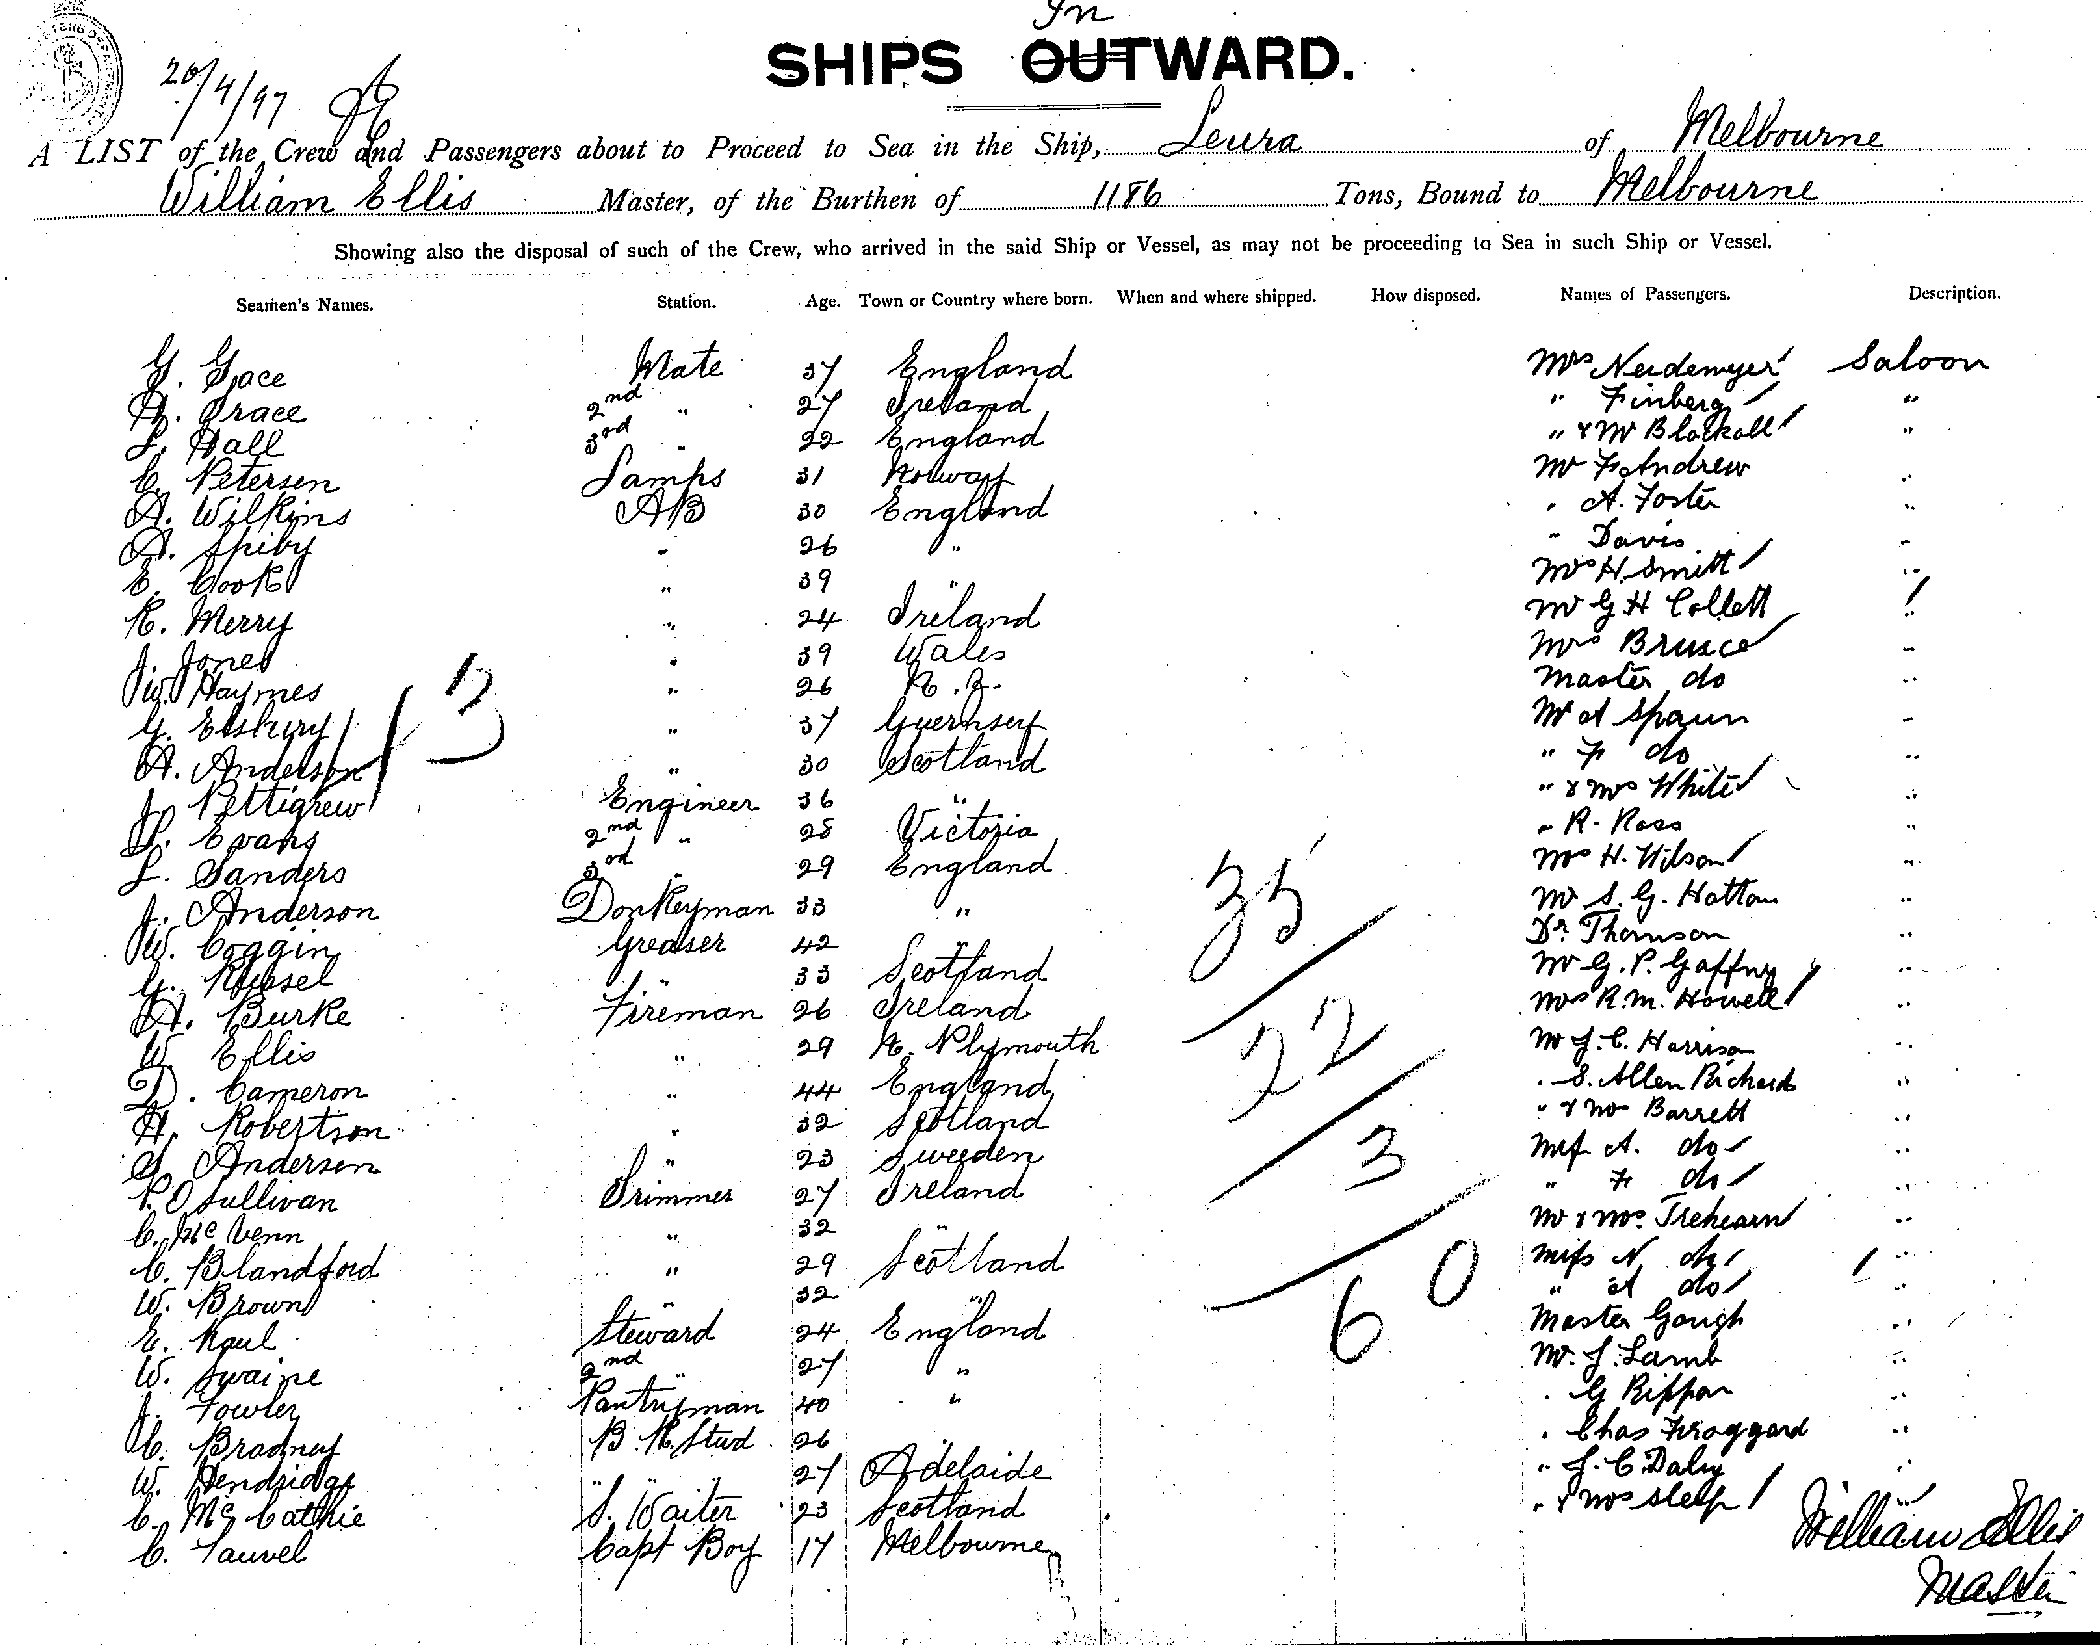 In
SHIPS OUTWARD.
20/4/97
A LIST of the Crew and Passengers about to Proceed to Sea in the Ship, Leura of Melbourne
William Ellis Master, of the Burthen of 1186 Tons, Bound to Melbourne
Showing also the disposal of such of the Crew, who arrived in the said Ship or Vessel, as may not be proceeding to Sea in such Ship or Vessel.
Seamen's Names. Station. Age. Town or Country where born. When and where shipped. How disposed. Names of Passengers. Description.
G. Grace Mate 37 England Mrs Neidemyer Saloon
Grace 2nd " 27 Ireland " Finberg "
L. Hall 3rd " 22 England " & Mr Blackall "
C. Petersen Lamps 31 Norway Mr F. Andrew "
A. Wilkins AB 30 England " A. Foster "
A. Spiby " 26 " " Davis "
E. Cook " 39 " Mrs H. Smith "
R. Merry " 24 Ireland Mr G H Collett "
J. Jones " 39 Wales Mrs Brusce "
W. Haymes " 26 N.Z. Master do "
G. Elsbury " 37 Guernsey Mr A Spaun "
A. Anderson " 30 Scotland " F do "
J. Pettigrew Engineer 36 " " & Mrs White "
Evans 2nd " 28 Victoria " R. Ross "
L. Sanders 3rd " 29 England Mrs H. Wilson "
J. Anderson Donkeyman 33 " Mr S. G. Hatton "
W. Coggin Greaser 42 " Dr Thomson "
G. " 33 Scotland Mr G. P. Gaffny "
A. Burke Fireman 26 Ireland Mrs R. M. Howell "
W. Ellis " 29 N. Plymouth Mr J. C. Harrison "
D. Cameron " 44 England " S. Allen Richards "
H. Robertson " 32 Scotland " & Mrs Barrett "
S. Andersen " 23 Sweeden Miss A. do "
P. O'Sullivan Trimmer 27 Ireland " F do "
C. McVenn " 32 " Mr & Mrs Trehearn "
C. Blandford " 29 Scotland Miss N do "
W. Brown " 32 " " A do "
E. Steward 24 England Master Gough "
W. Swaine 2nd " 27 " Mr. J. Lamb "
J. Fowler Pantryman 40 " " G Rippon "
C. Bradney B. R. Stud 26 " Chas Froggard "
W. " " 27 Adelaide " J. C. Daly "
C. McCathie S. Waiter 23 Scotland " & Mrs Sleep "
C. Tauvel Capt Boy 17 Melbourne
13
35
22
3
60
William Ellis
Master